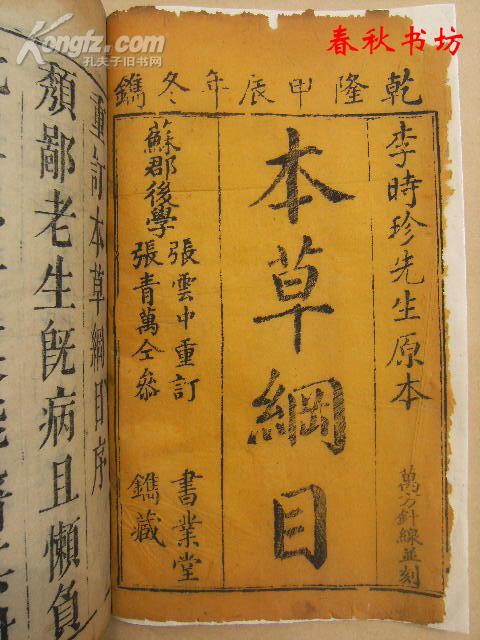 乾隆甲辰年冬鐫
李時珍先生原本
萬方針線並刻
本草綱目
蘇郡後學
張雲中重訂
張青萬仝參
書業堂
鐫藏
重訂本草綱目序
頽鄙老生旣病且懶負
春秋书坊
Kongfz.com
孔夫子旧书网